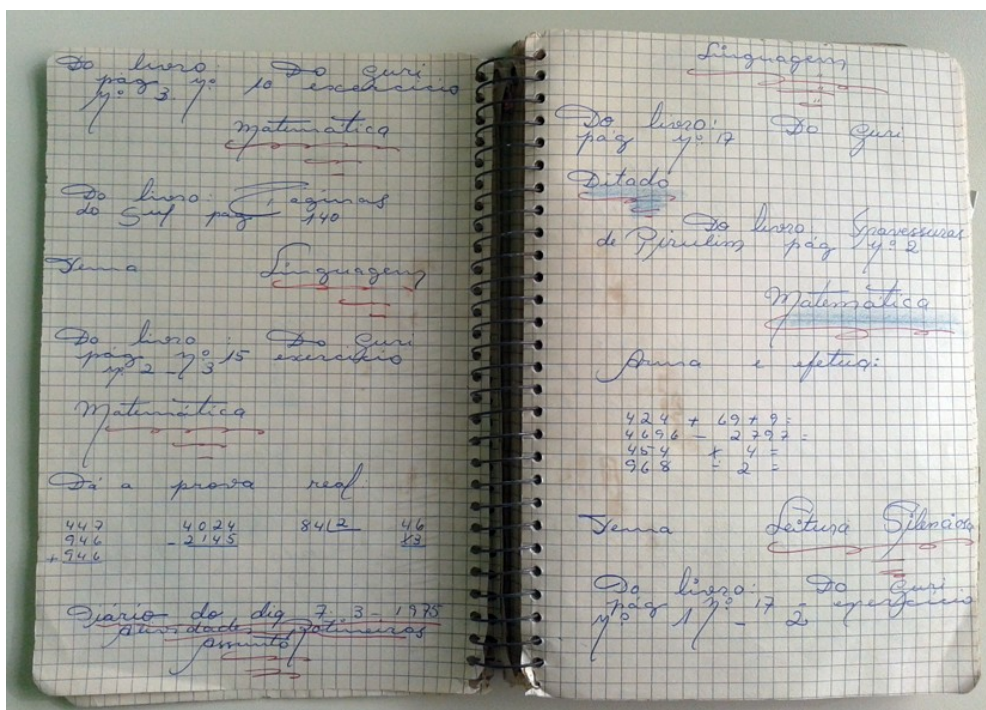 Do livro: Do Guri
pág nº 10 exercício
nº 3
Matemática
Do livro: Páginas
do Sul pág 140
Tema Linguagem
Do livro: Do Guri
pág nº 15 exercício
nº 2 - 3
Matemática
Dá a prova real:
447 4024 84 2 46
946 - 2145 x3
+ 946
Diário do dia 7-3-1975
Atividades Rotineiras
Assunto
Linguagem
Do livro: Do Guri
pág nº 17
Ditado
Do livro Travessuras
de Pirulim pág nº 2
Matemática
Arma e efetua:
424 + 69 + 9 =
4696 - 2797 =
454 x 4 =
968 ÷ 2 =
Tema Leitura Silenciosa
Do livro: Do Guri
pág nº 17 - exercício
nº 1 - 2